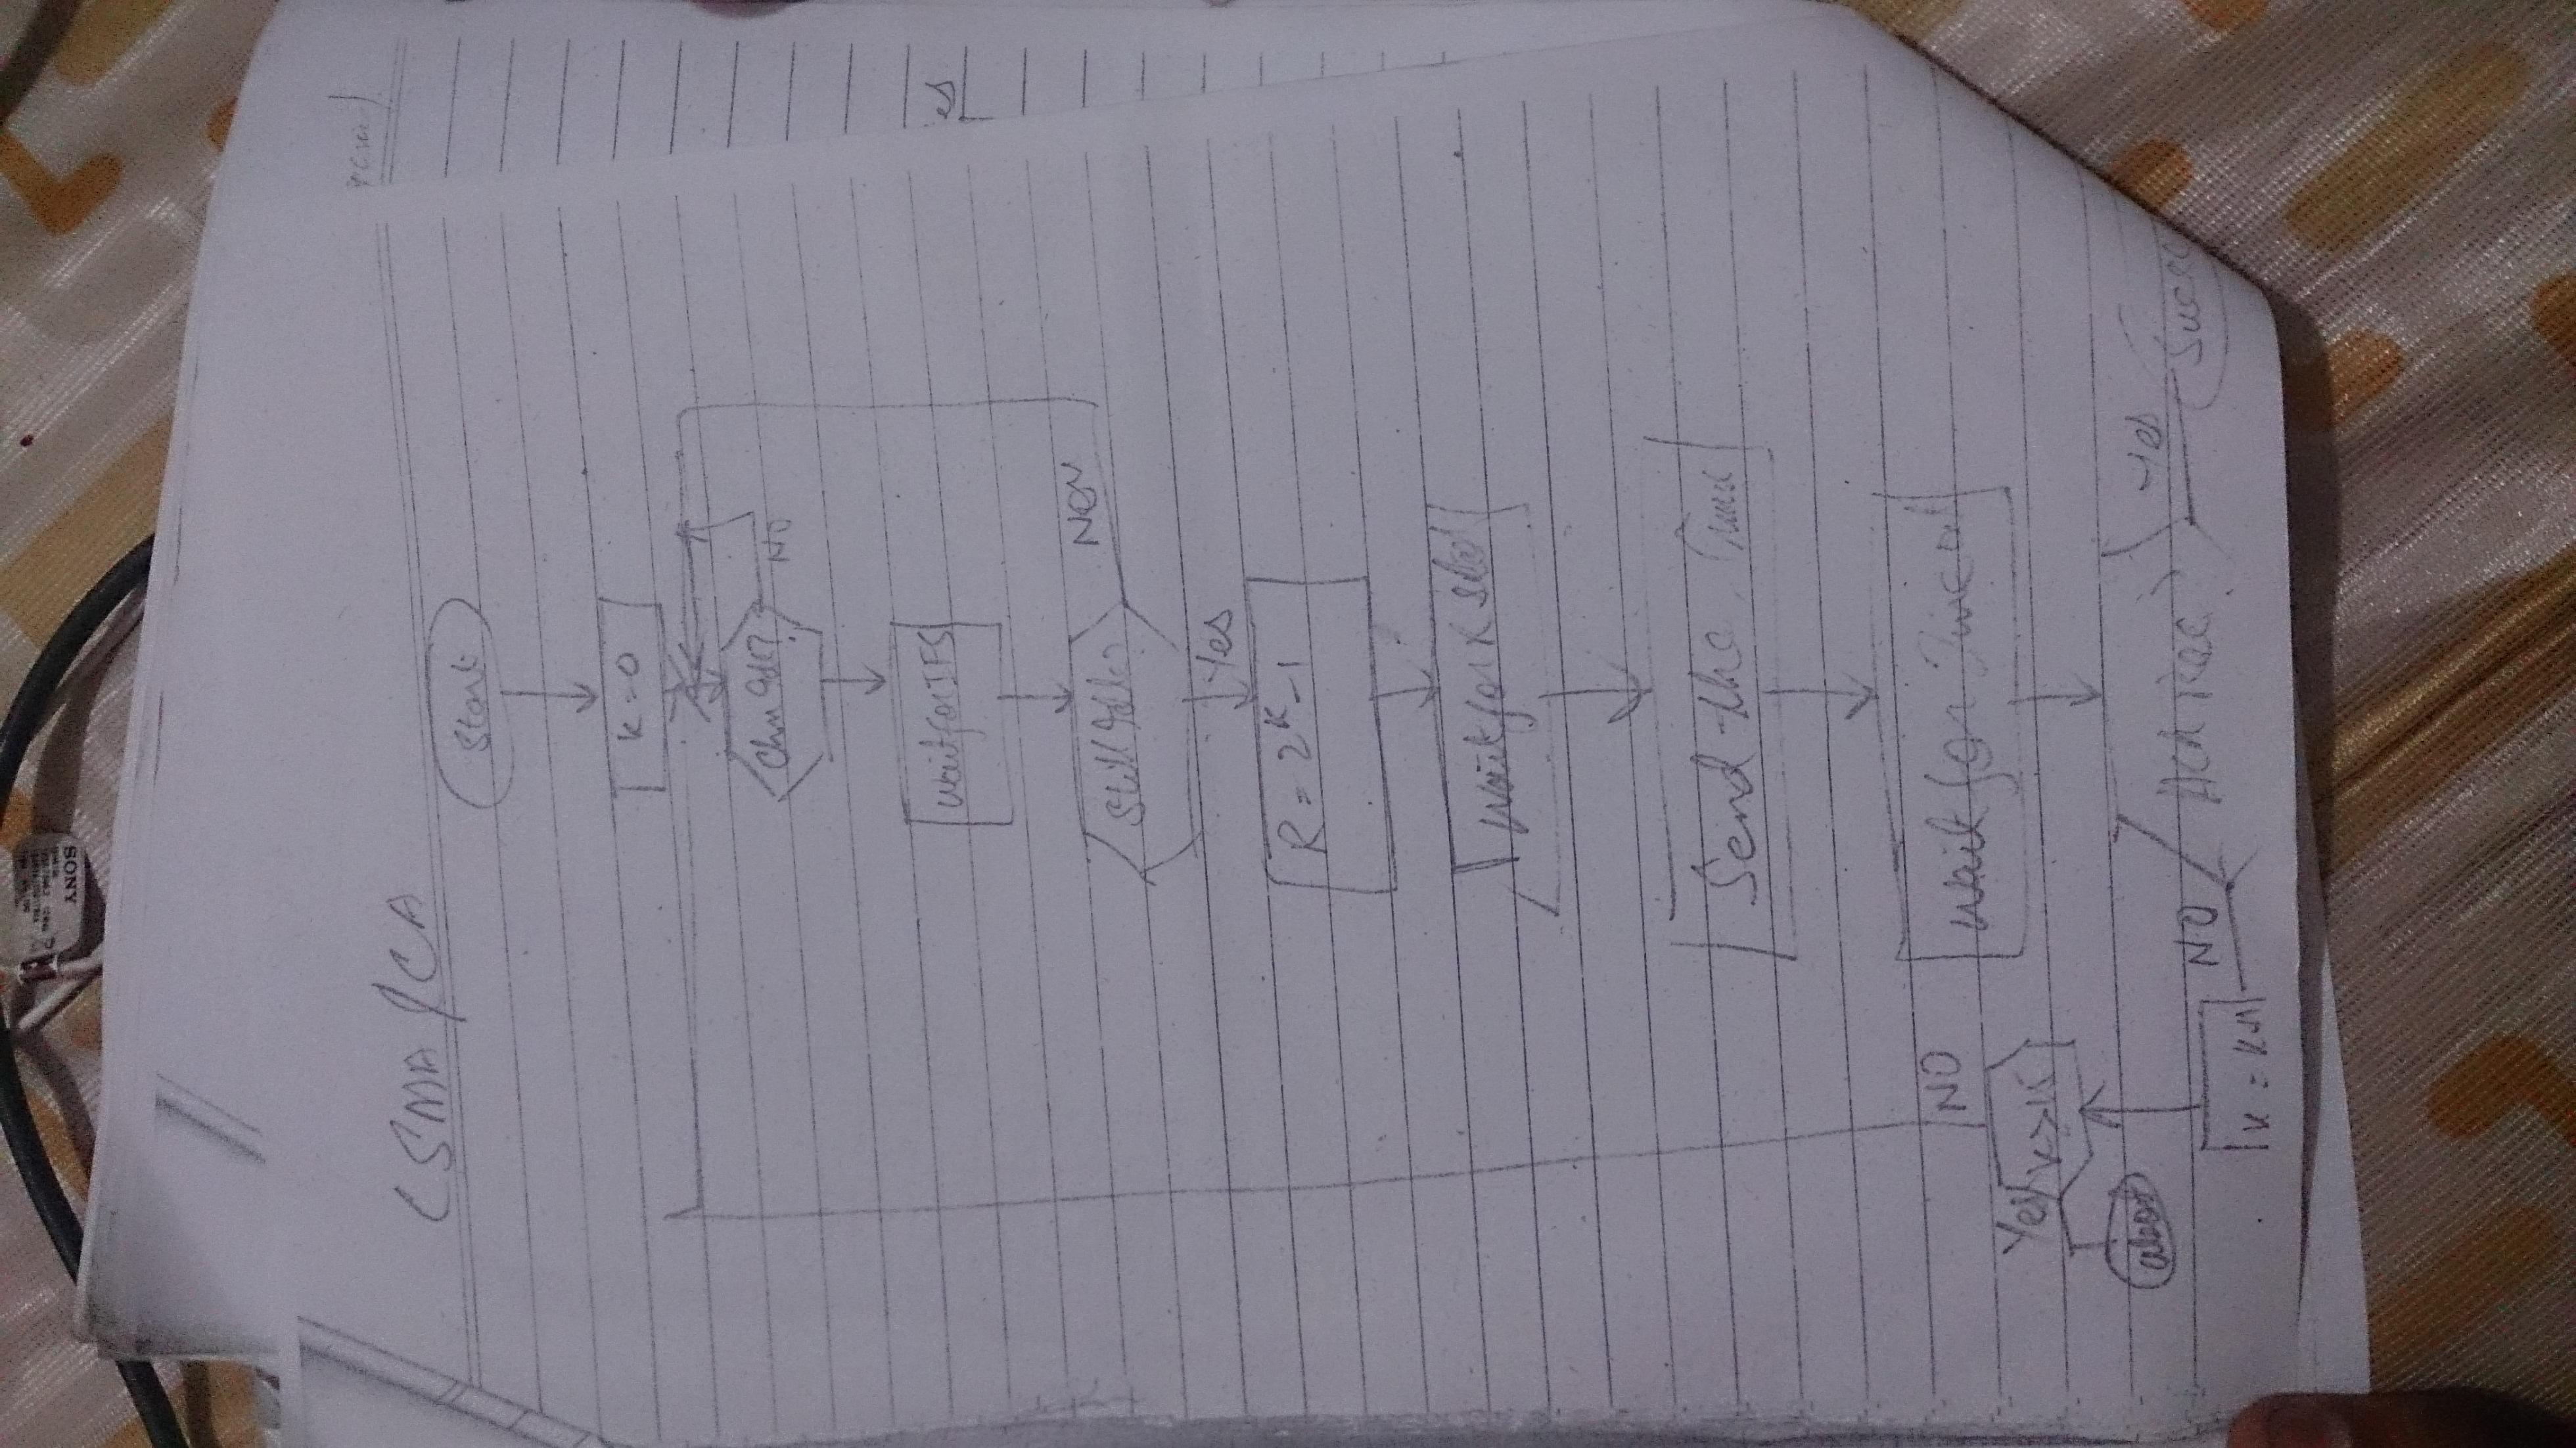 CSMA/CA
Start
K=0
Chn Idl?
NO
wait for IFS
Still Idle?
NO
Yes
R = 2^K - 1
Wait for R slot
Send the
wait for Time out
Ack Rec?
Yes
NO
Succe
K = K+1
K > 15
NO
Yes
abort
SONY
es